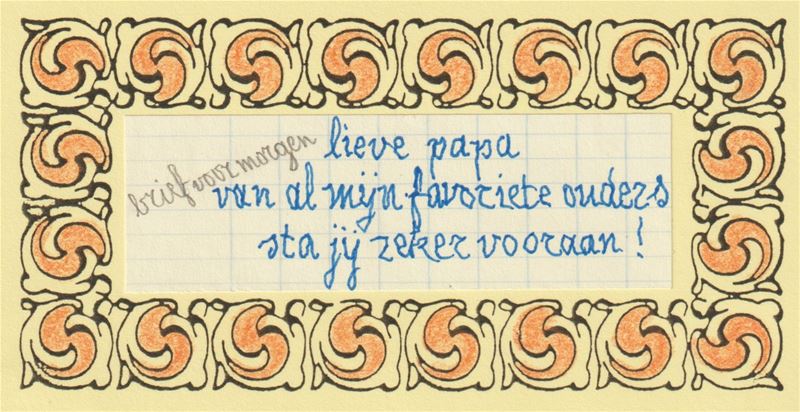 brief voor morgen
lieve papa
van al mijn favoriete ouders
sta jij zeker vooraan !